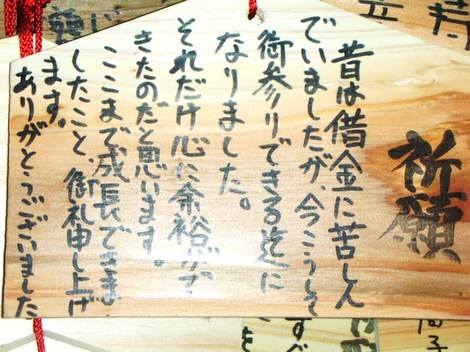 祈願
昔は借金に苦しん
でいましたが、今こうして
御参りできる迄に
なりました。
それだけ心に余裕がで
きたのだと思います。
ここまで成長できま
したこと、御礼申し上げ
ます。
ありがとうございました